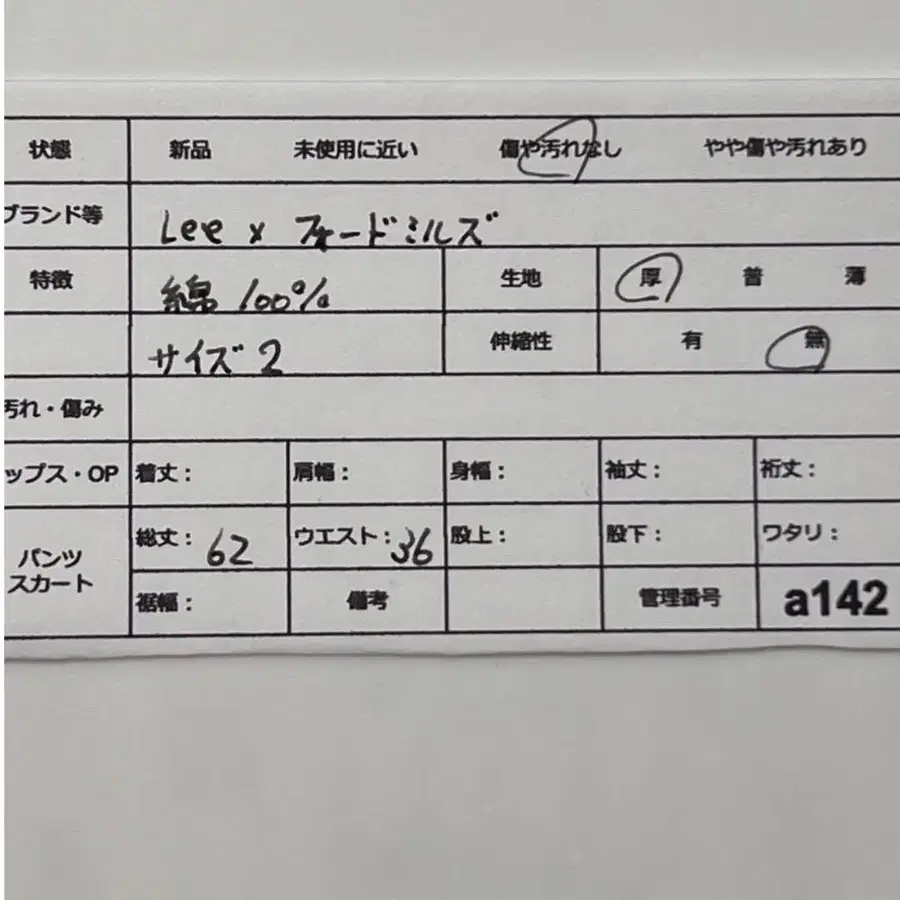 状態 新品 未使用に近い 傷や汚れなし やや傷や汚れあり
ブランド等 Lee x フォードミルズ
特徴 綿 100% 生地 厚 普 薄
サイズ 2 伸縮性 有 無
汚れ・傷み
ップス・OP 着丈： 肩幅： 身幅： 袖丈： 裄丈：
パンツ スカート 総丈： 62 ウエスト： 36 股上： 股下： ワタリ：
裾幅： 備考 管理番号 a142